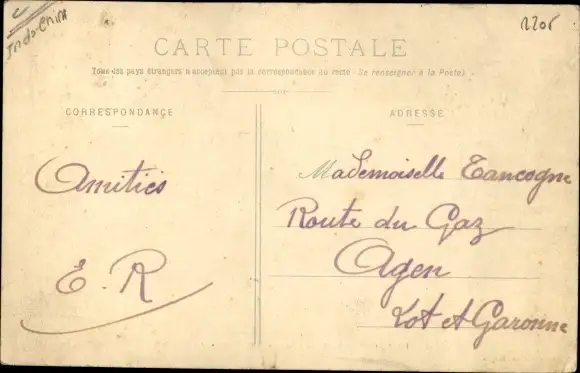 Indo-China
2205
CARTE POSTALE
Tous les pays étrangers n'acceptent pas la correspondance au recto (Se renseigner à la Poste).
CORRESPONDANCE
ADRESSE
Amitiés
E. R
Mademoiselle Tancogne
Route du Gaz
Agen
Lot et Garonne